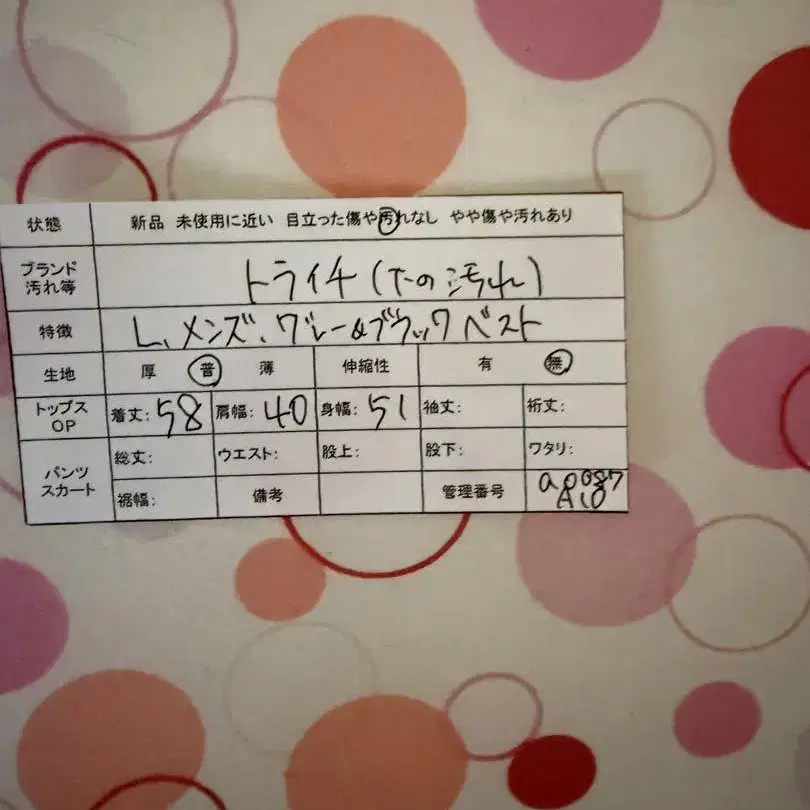 状態 新品 未使用に近い 目立った傷や汚れなし やや傷や汚れあり
ブランド 汚れ等 トライチ(下の汚れ)
特徴 L、メンズ、グレー&ブラックベスト
生地 厚 普 薄 伸縮性 有 無
トップス OP 着丈:58 肩幅:40 身幅:51 袖丈: 裄丈:
パンツ スカート 総丈: ウエスト: 股上: 股下: ワタリ:
裾幅: 備考 管理番号 a0087
A10